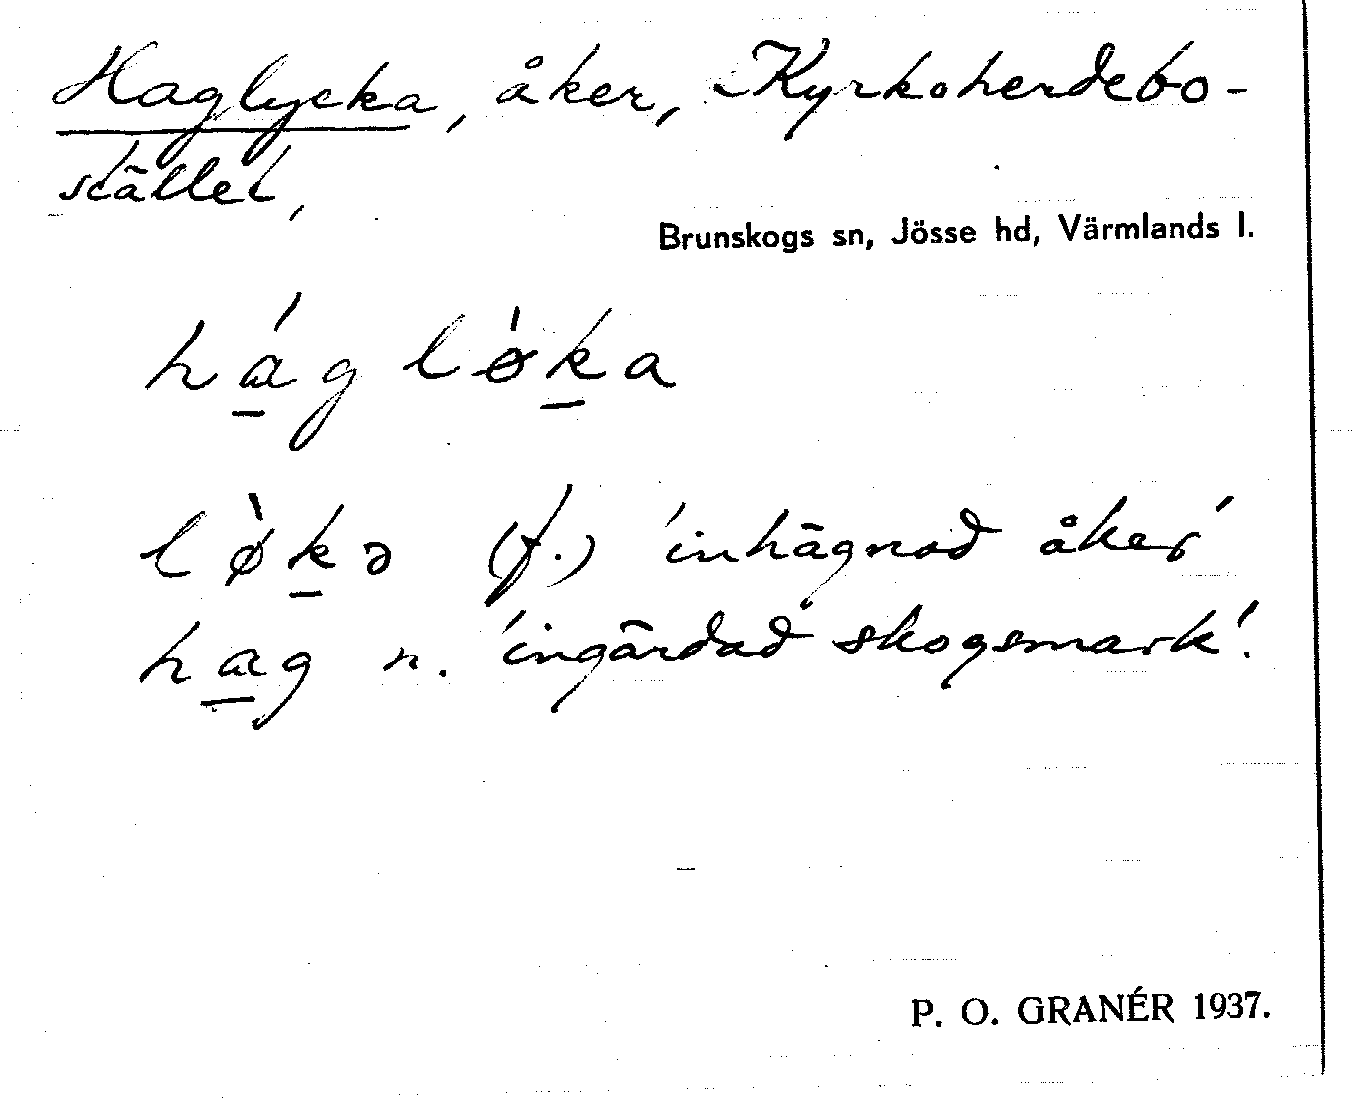 Haglycka, åker, Kyrkoherdebo-
stället,
Brunskogs sn, Jösse hd, Värmlands l.
hág lø̀ka
lø̀kə (f.) 'inhägnad åker'
hag n. 'ingärdad skogsmark'.
P. O. GRANÉR 1937.